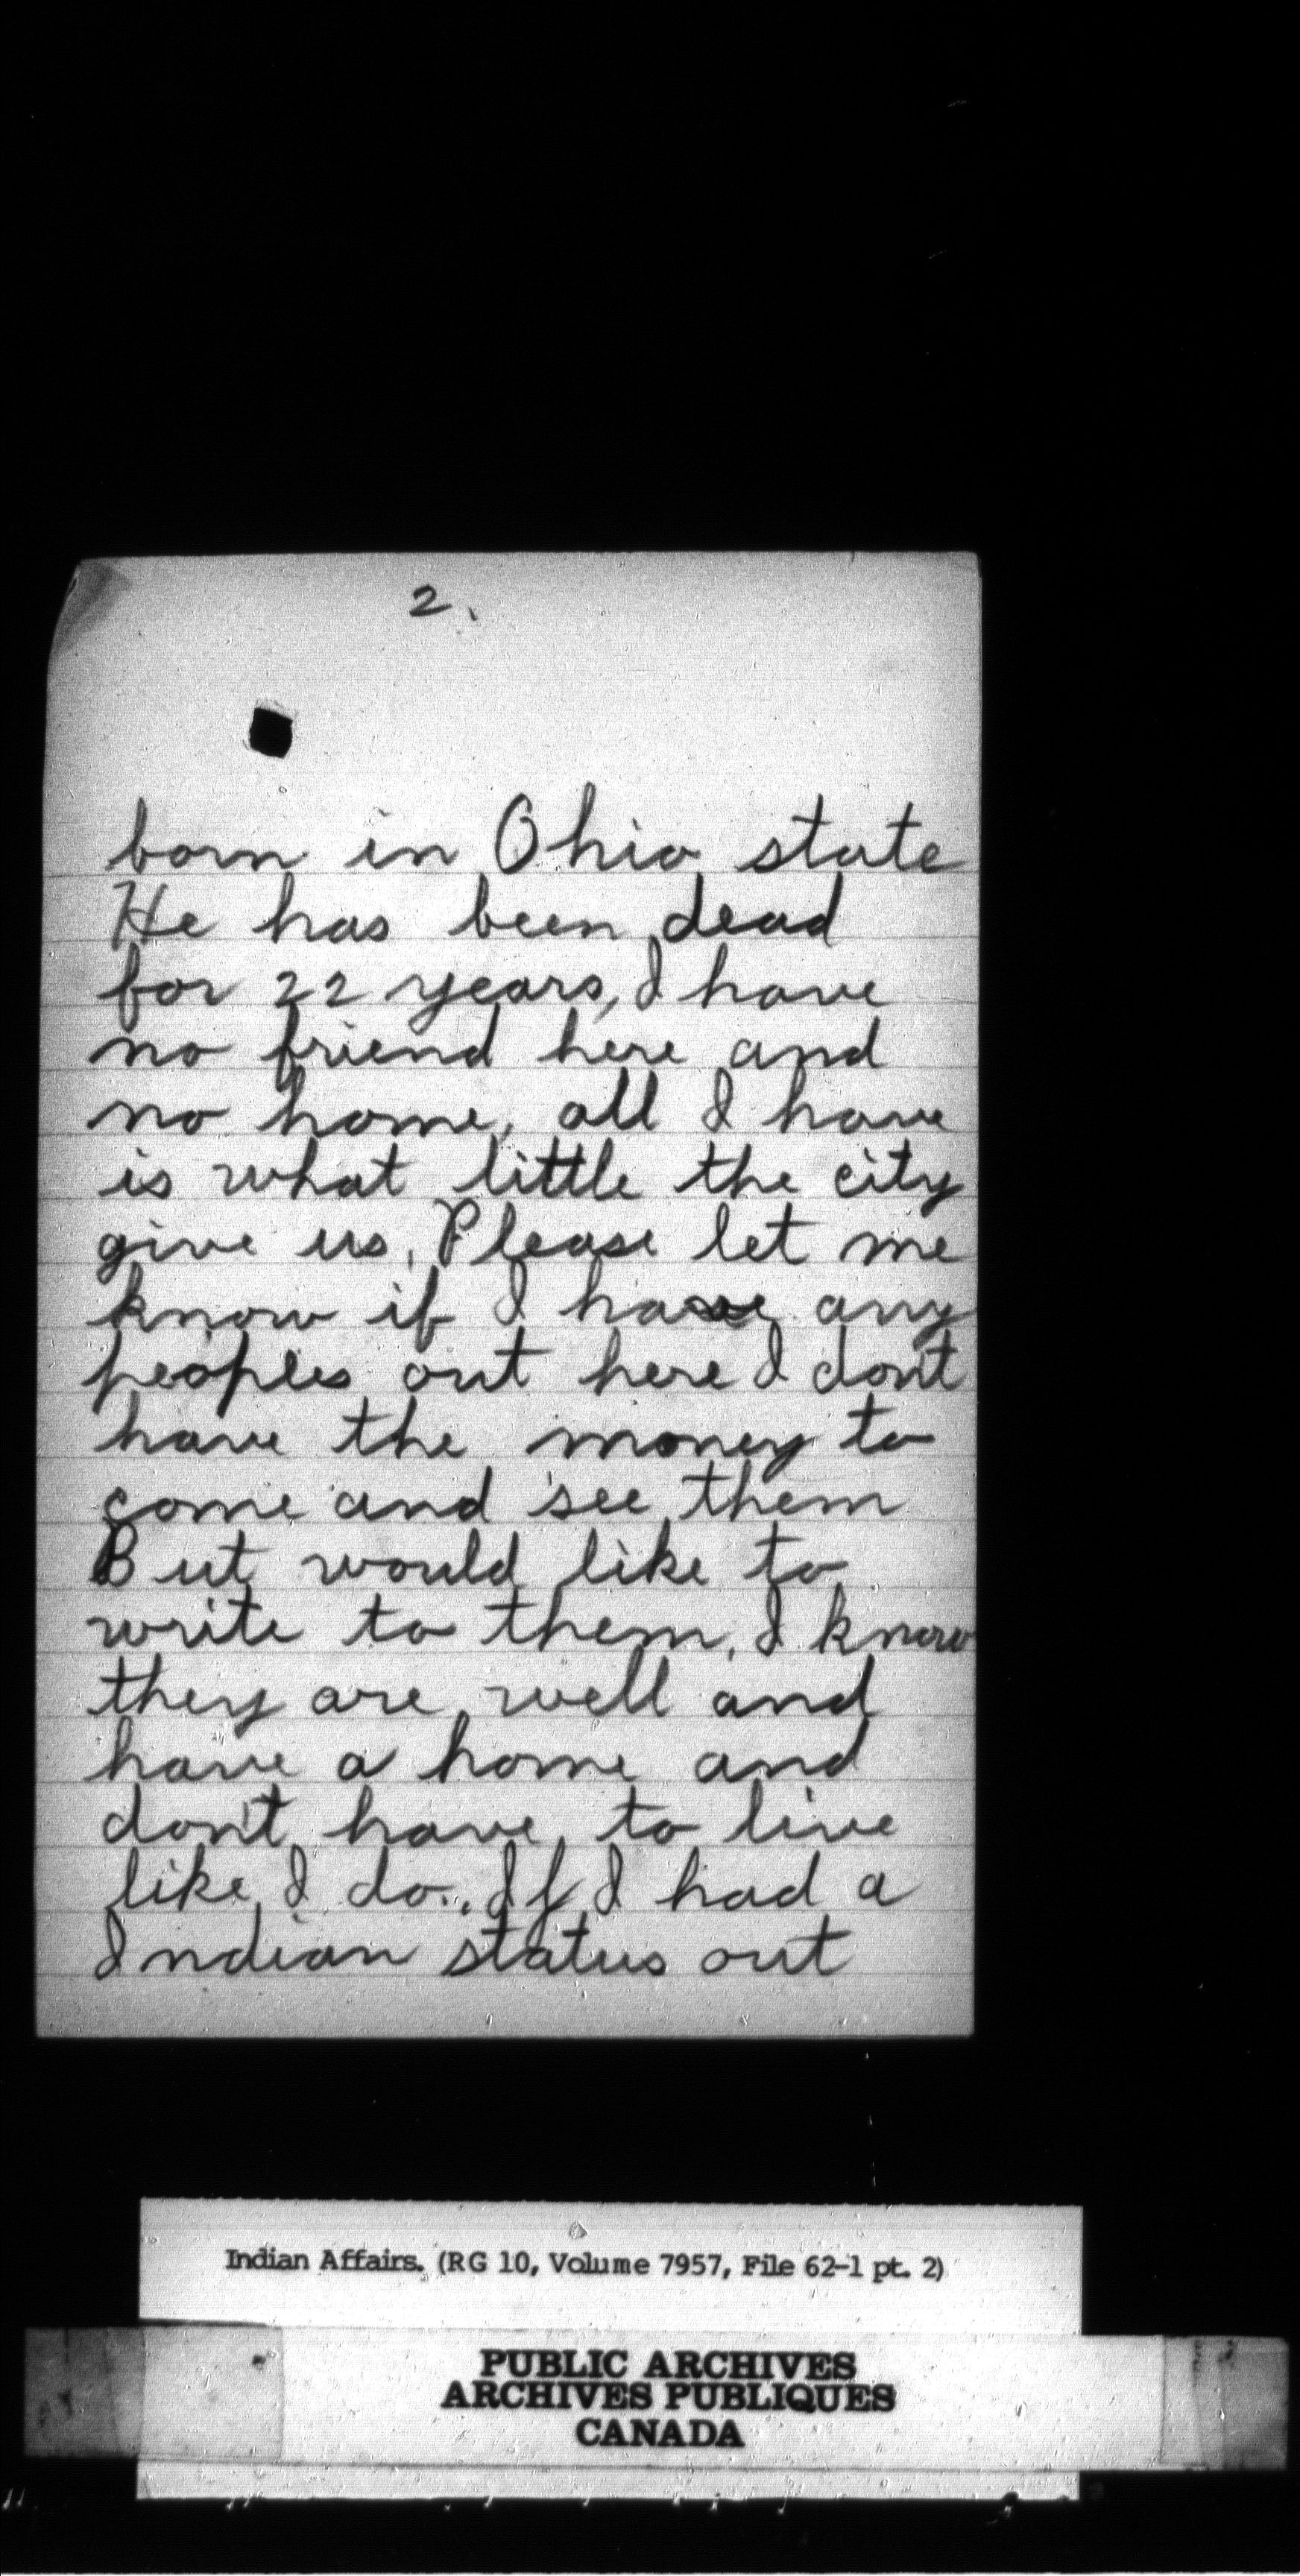 2.
born in Ohio state
He has been dead
for 22 years, I have
no friend here and
no home, all I have
is what little the city
give us, Please let me
know if I have any
peoples out here I dont
have the money to
come and see them
But would like to
write to them, I know
they are well and
have a home and
don't have to live
like I do.. If I had a
Indian status out
Indian Affairs. (RG 10, Volume 7957, File 62-1 pt. 2)
PUBLIC ARCHIVES
ARCHIVES PUBLIQUES
CANADA